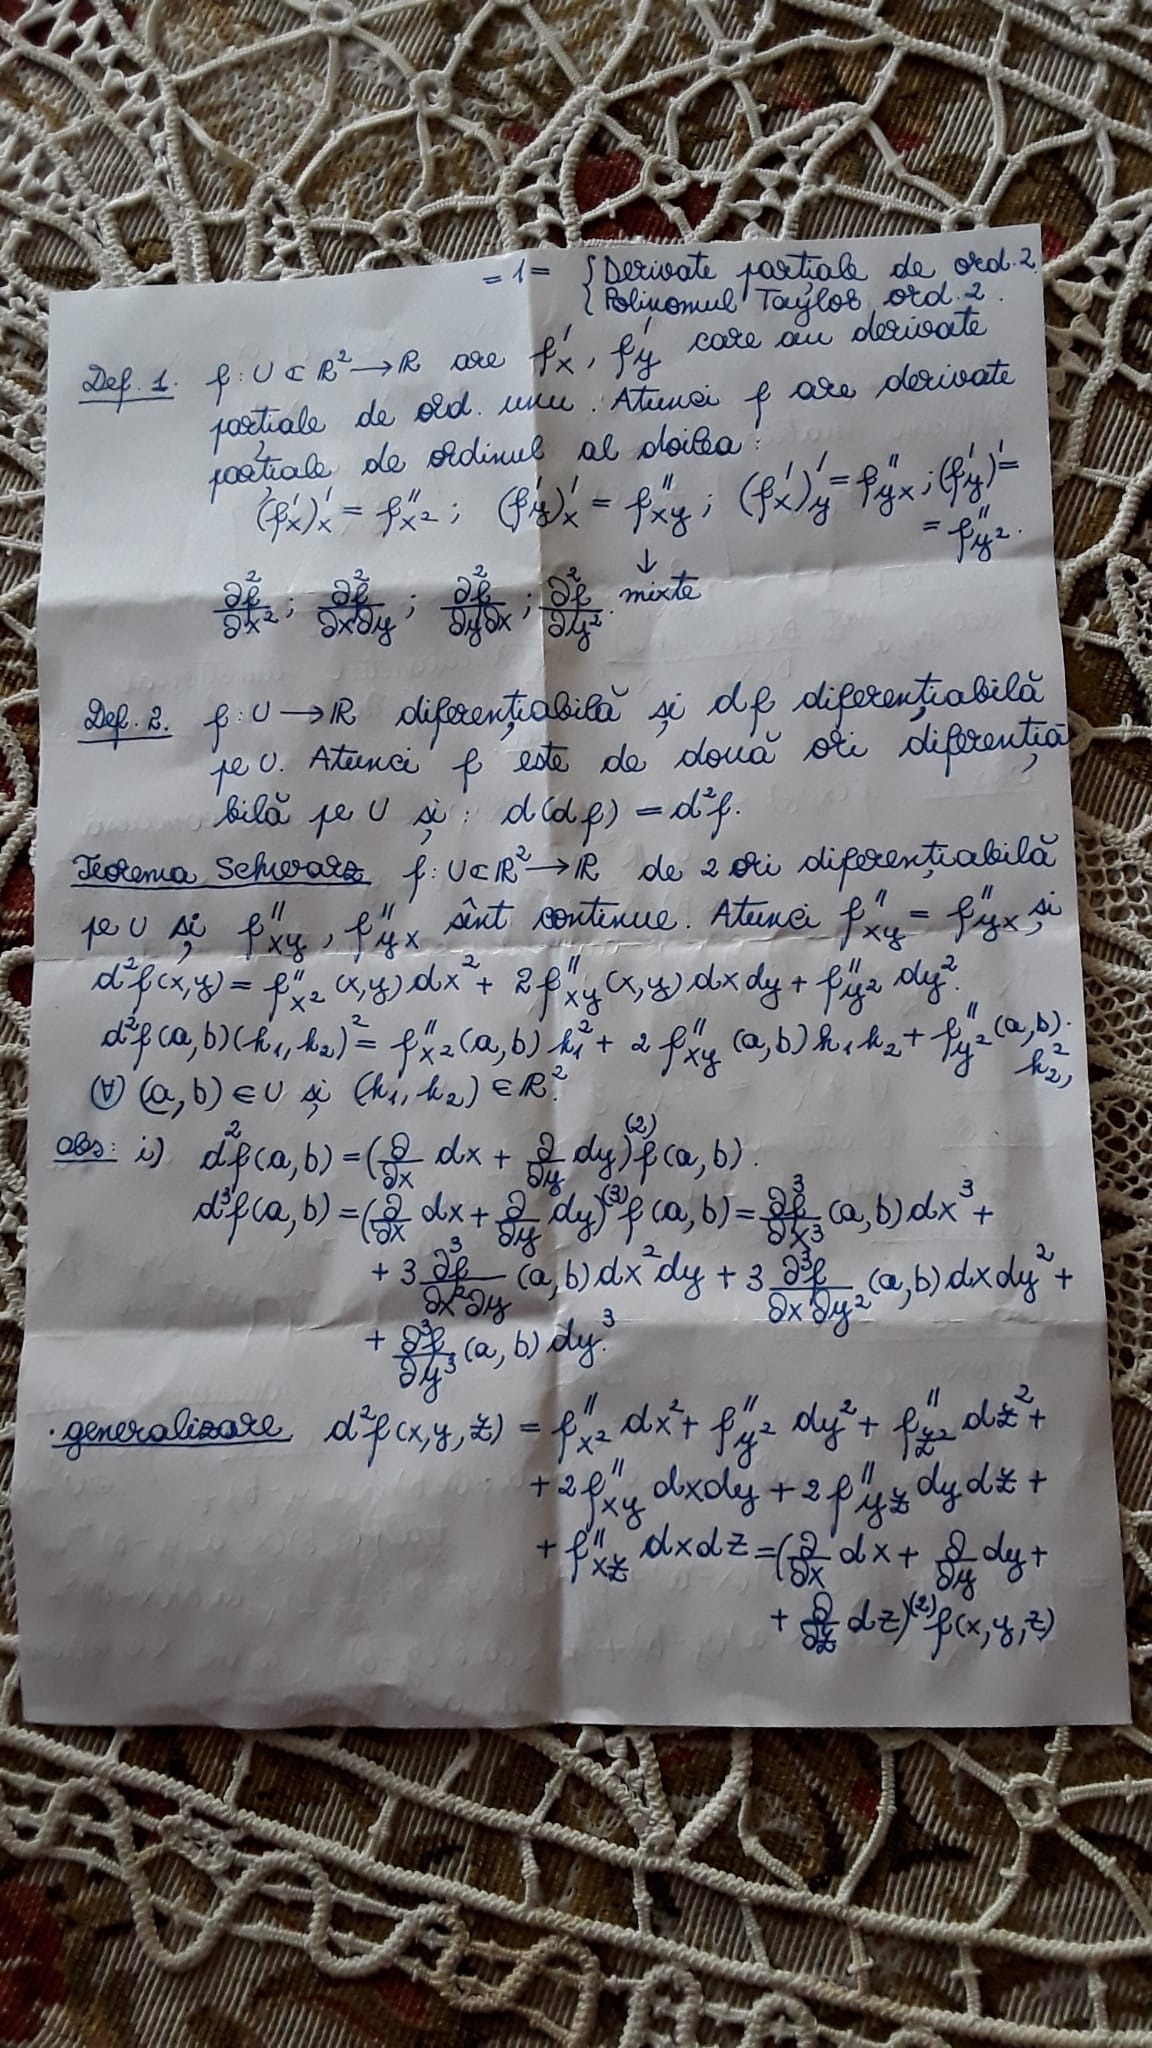 = 1 = { Derivate parțiale de ord. 2.
{ Polinomul Taylor ord. 2.
Def. 1. f : U ⊂ ℝ² → ℝ are f'x , f'y care au derivate
parțiale de ord. unu. Atunci f are derivate
parțiale de ordinul al doilea:
(f'x)'x = f''x² ; (f'y)'x = f''xy ; (f'x)'y = f''yx ; (f'y)' =
= f''y².
↓
∂²f/∂x² ; ∂²f/∂x∂y ; ∂²f/∂y∂x ; ∂²f/∂y². mixte
Def. 2. f : U → ℝ diferențiabilă și df diferențiabilă
pe U. Atunci f este de două ori diferenția
bilă pe U și: d(df) = d²f.
Teorema Schwarz f : U ⊂ ℝ² → ℝ de 2 ori diferențiabilă
pe U și f''xy , f''yx sînt continue. Atunci f''xy = f''yx și
d²f(x,y) = f''x² (x,y) dx² + 2f''xy (x,y) dx dy + f''y² dy².
d²f(a,b)(h1,h2)² = f''x² (a,b) h1² + 2 f''xy (a,b) h1 h2 + f''y² (a,b)·
h2²,
(∀) (a,b) ∈ U și (h1,h2) ∈ ℝ².
obs: i) d²f(a,b) = (∂/∂x dx + ∂/∂y dy)⁽²⁾ f(a,b).
d³f(a,b) = (∂/∂x dx + ∂/∂y dy)⁽³⁾ f(a,b) = ∂³f/∂x³ (a,b) dx³ +
+ 3 ∂³f/∂x²∂y (a,b) dx² dy + 3 ∂³f/∂x∂y² (a,b) dx dy² +
+ ∂³f/∂y³ (a,b) dy³.
· generalizare d²f(x,y,z) = f''x² dx² + f''y² dy² + f''z² dz² +
+ 2f''xy dx dy + 2 f''yz dy dz +
+ f''xz dx dz = (∂/∂x dx + ∂/∂y dy +
+ ∂/∂z dz)⁽²⁾ f(x,y,z)